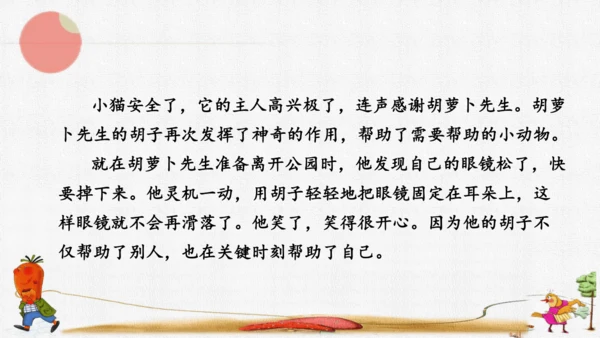 小猫安全了，它的主人高兴极了，连声感谢胡萝卜先生。胡萝
卜先生的胡子再次发挥了神奇的作用，帮助了需要帮助的小动物。
就在胡萝卜先生准备离开公园时，他发现自己的眼镜松了，快
要掉下来。他灵机一动，用胡子轻轻地把眼镜固定在耳朵上，这
样眼镜就不会再滑落了。他笑了，笑得很开心。因为他的胡子不
仅帮助了别人，也在关键时刻帮助了自己。